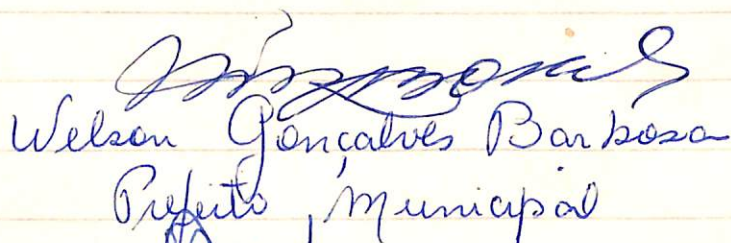 Welson Gonçalves Barbosa
Prefeito Municipal